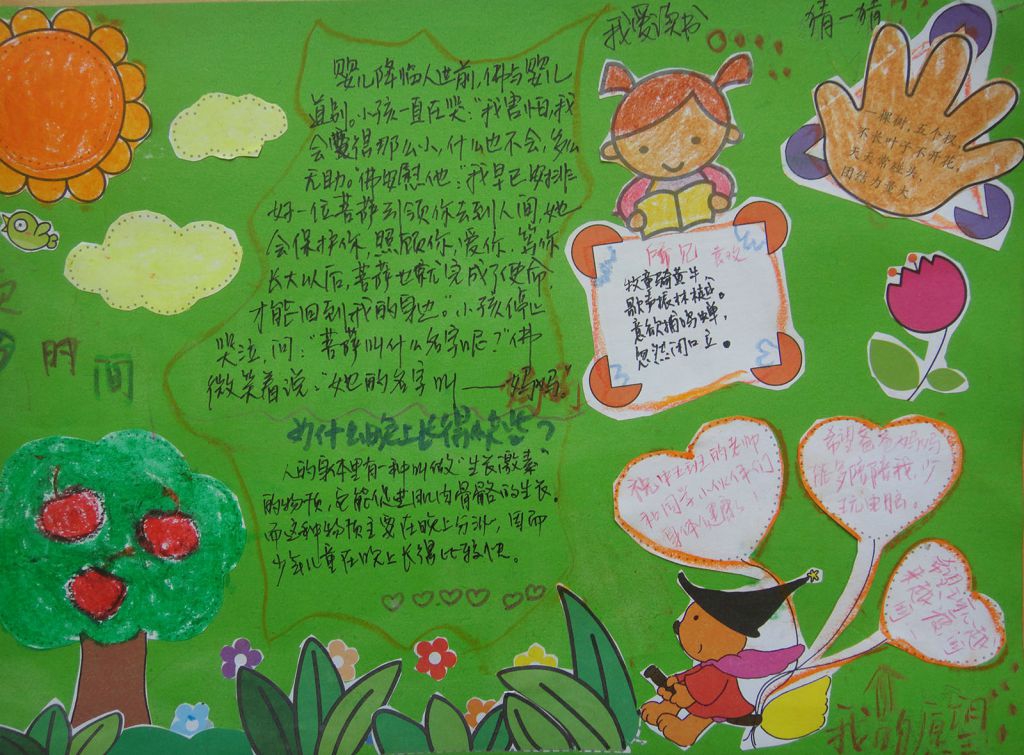 婴儿降临人世前,佛与婴儿
直别。小孩一直在哭:“我害怕,我
会变得那么小,什么也不会,多么
无助。”佛安慰他:“我早已安排
好一位菩萨到领你去到人间,她
会保护你,照顾你,爱你,等你
长大以后,菩萨也就完成了使命,
才能回到我的身边。”小孩停止
哭泣,问:“菩萨叫什么名字呢?”佛
微笑着说:“她的名字叫——妈妈。”
为什么晚上长得快些?
人的身体里有一种叫做“生长激素”
的物质,它能促进肌肉骨骼的生长。
而这种物质主要在晚上分泌,因而
少年儿童在晚上长得比较快。
我爱读书
所见 袁枚
牧童骑黄牛
歌声振林樾。
意欲捕鸣蝉,
忽然闭口立。
猜一猜
一棵树,五个杈,
不长叶子不开花,
天天常握头,
团结力量大
祝中班的老师
和同学小伙伴们
身体健康!
希望爸爸妈妈
能多陪陪我,少
玩电脑。
我的愿望
的
间